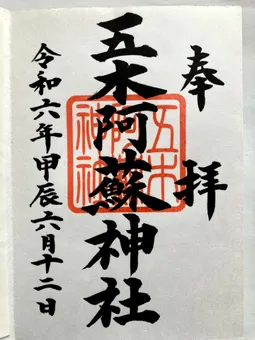 奉拝
五木阿蘇神社
令和六年甲辰六月十二日
五木阿蘇神社